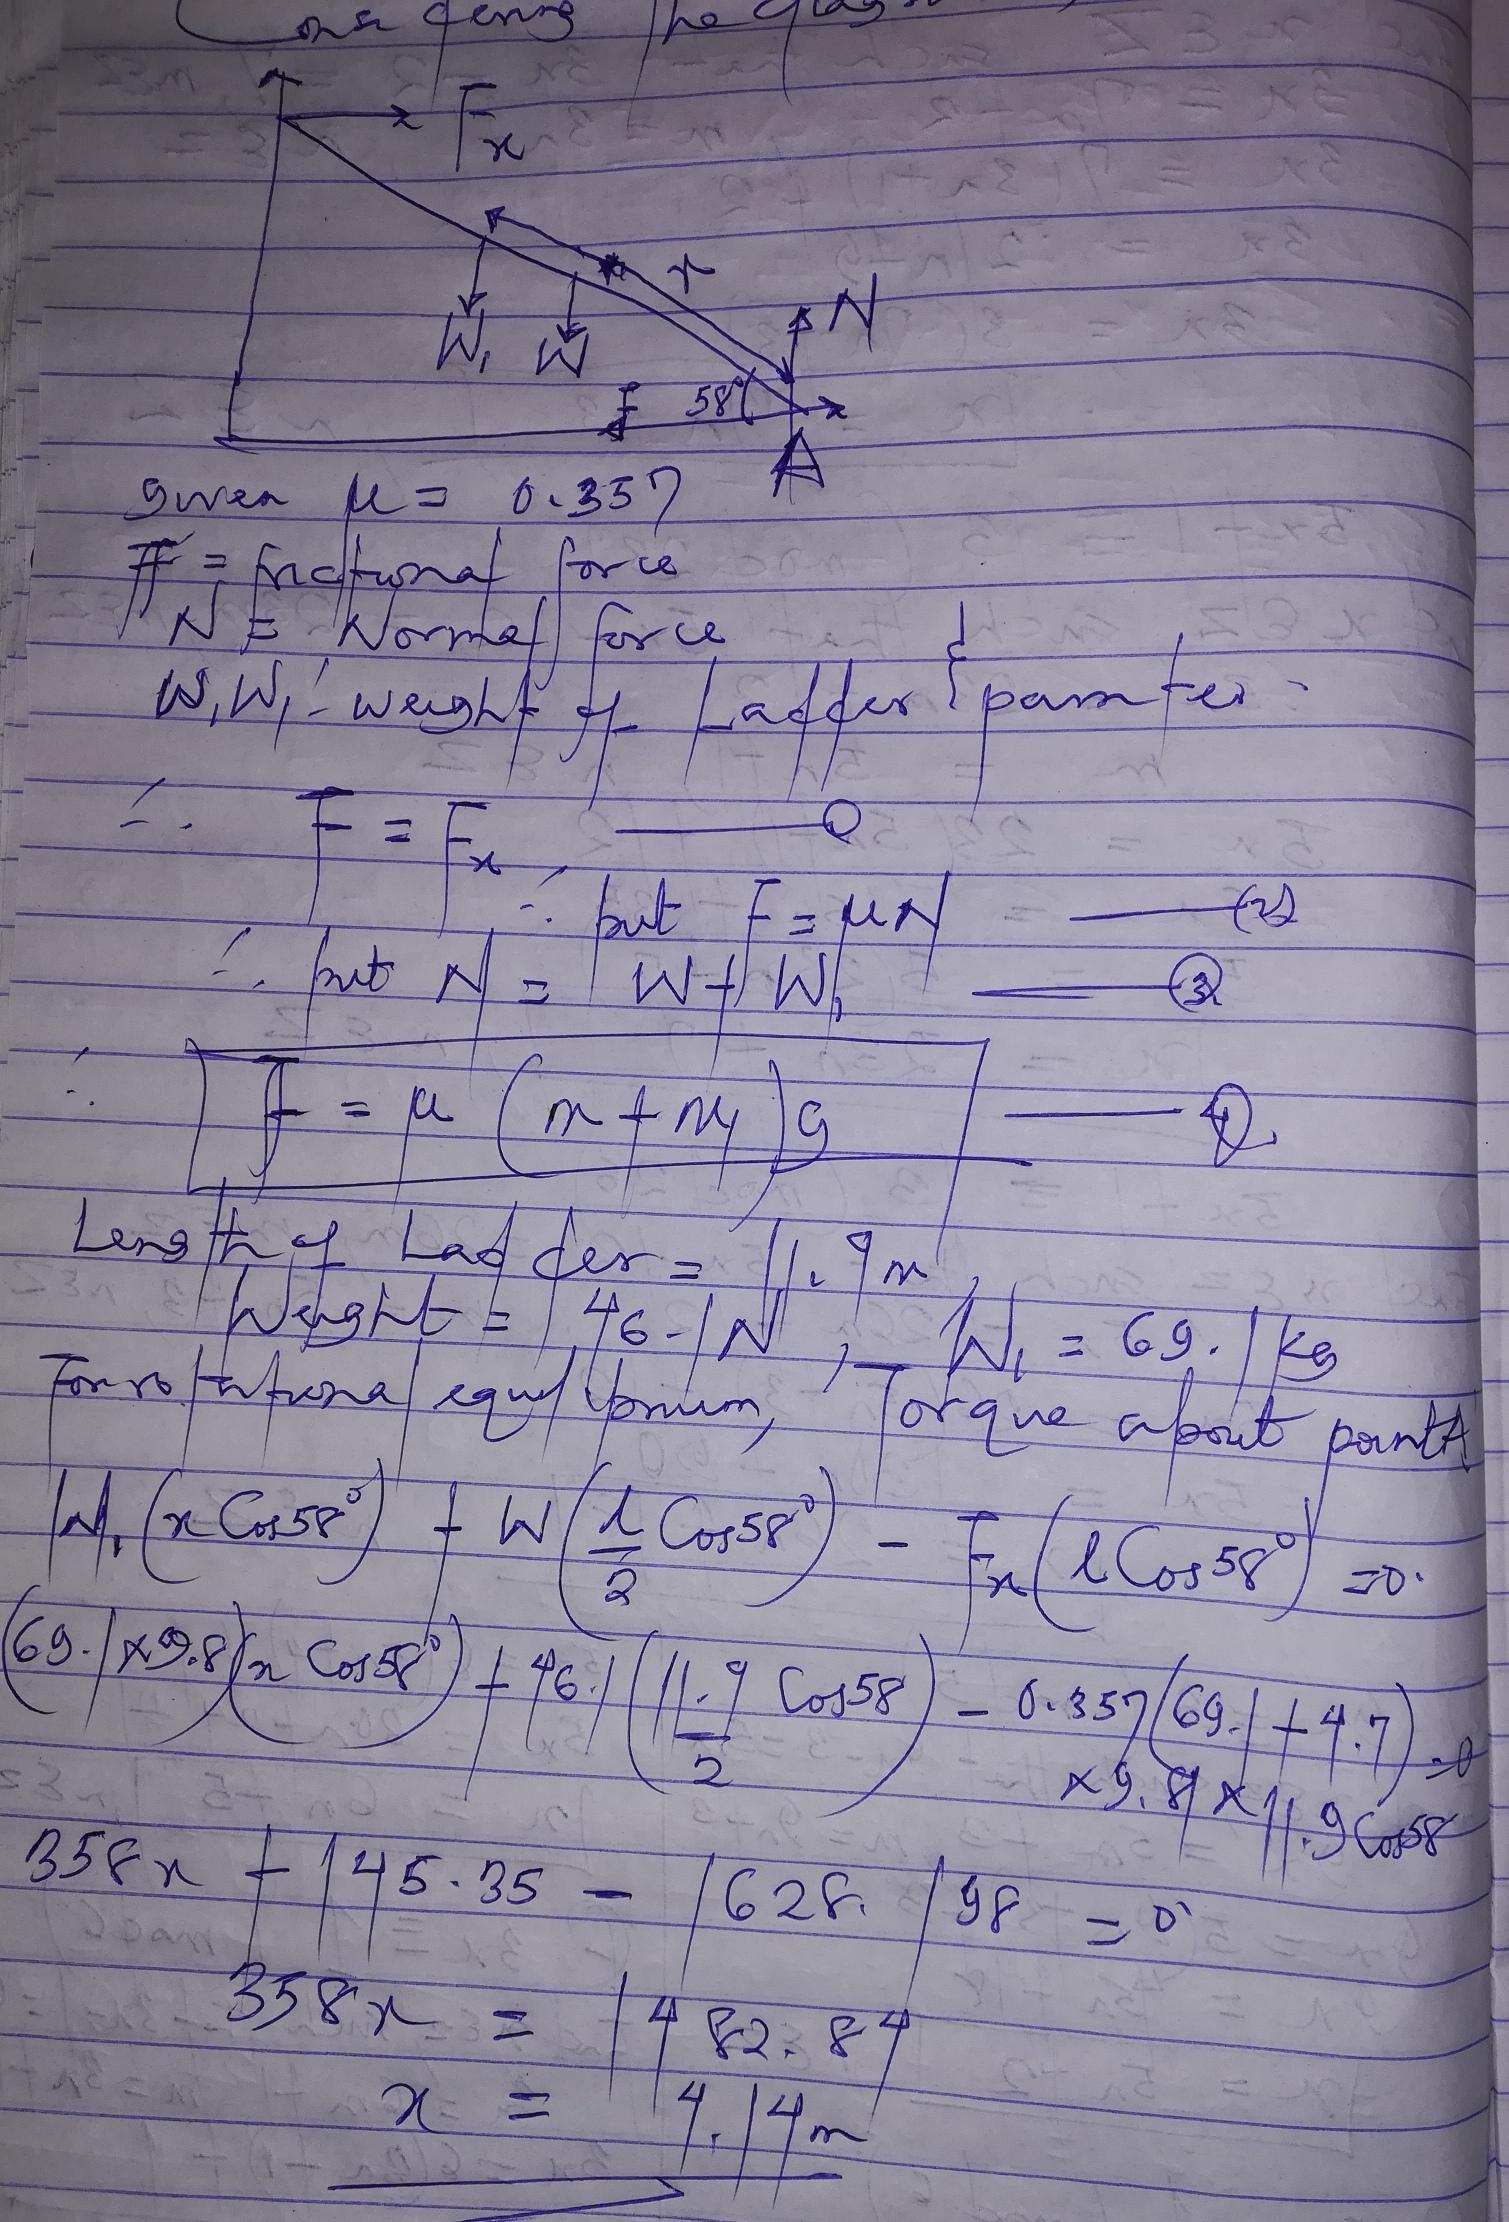 Considering the diagram,
Fx
x
N
W₁ W
F 58°
A
given μ = 0.357
F = frictional force
N = Normal force
W, W₁ = weight of Ladder & painter.
∴ F = Fx ——— ①
∴ but F = μN ——— (2)
∴ but N = W + W₁ ——— ③
∴ F = μ (m + m₁)g ——— 4
Length of Ladder = 11.9m,
Weight = 46.1N, W₁ = 69.1kg
For rotational equilibrium, Torque about point A
W₁(x Cos58°) + W(l/2 Cos58°) - Fx(l Cos58°) = 0.
(69.1×9.8)(x Cos58°) + 46.1(11.9/2 Cos58) - 0.357(69.1+4.7) = 0
×9.81×11.9Cos58
358x + 145.35 - 1628.198 = 0
358x = 1482.84
x = 4.14m